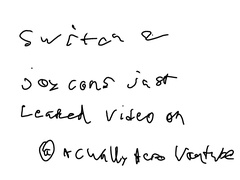 Switch 2
joy cons just
Leaked video on
@ Actually Aero Youtube